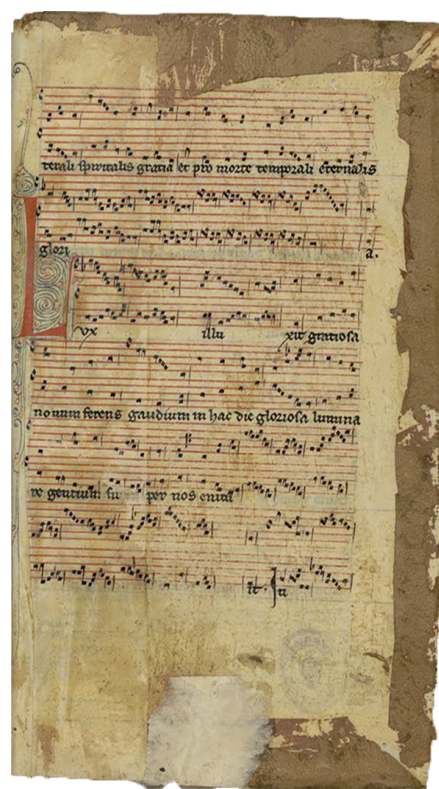 terali spiritalis gratia et pro morte temporali eternalis
glori a.
Lux illu xit gratiosa
novum ferens gaudium in hac die gloriosa lumina
re gentium su per nos
it. ti